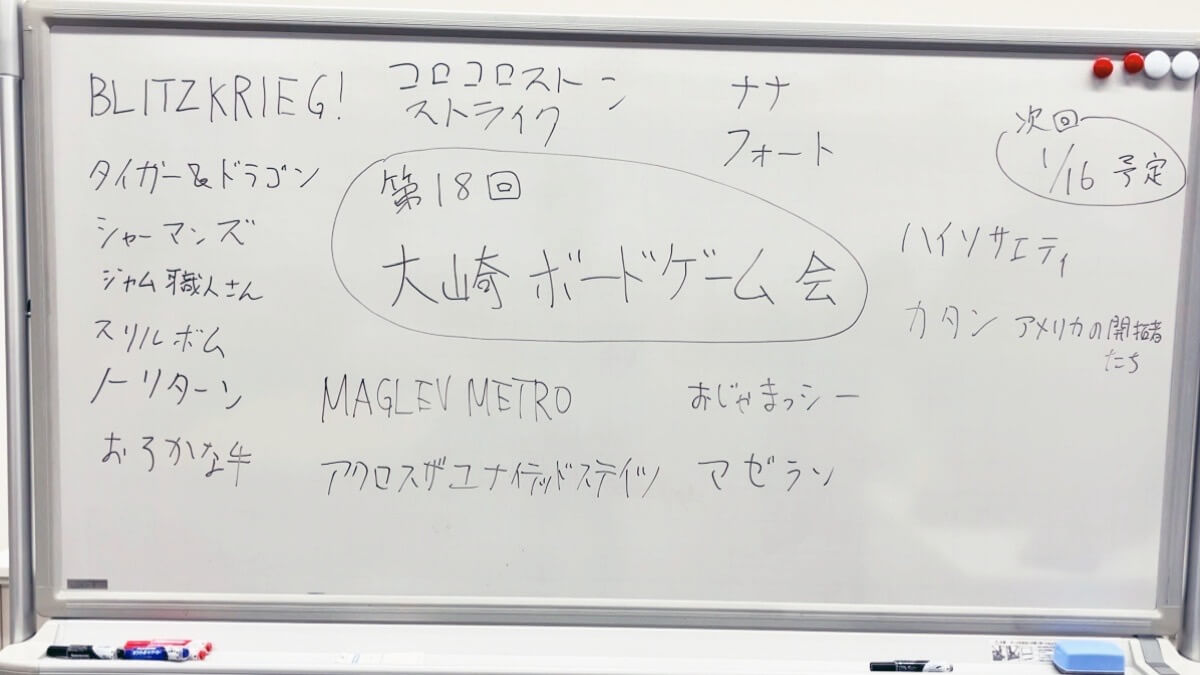 BLITZKRIEG!
タイガー&ドラゴン
シャーマンズ
ジャム職人さん
スリルボム
ノーリターン
おろかな牛
コロコロストーン
ストライク
ナナ
フォート
次回
1/16 予定
第18回
大崎 ボードゲーム 会
ハイソサエティ
カタン アメリカの開拓者
たち
MAGLEV METRO
アクロスザユナイテッドステイツ
おじゃまっシー
マゼラン